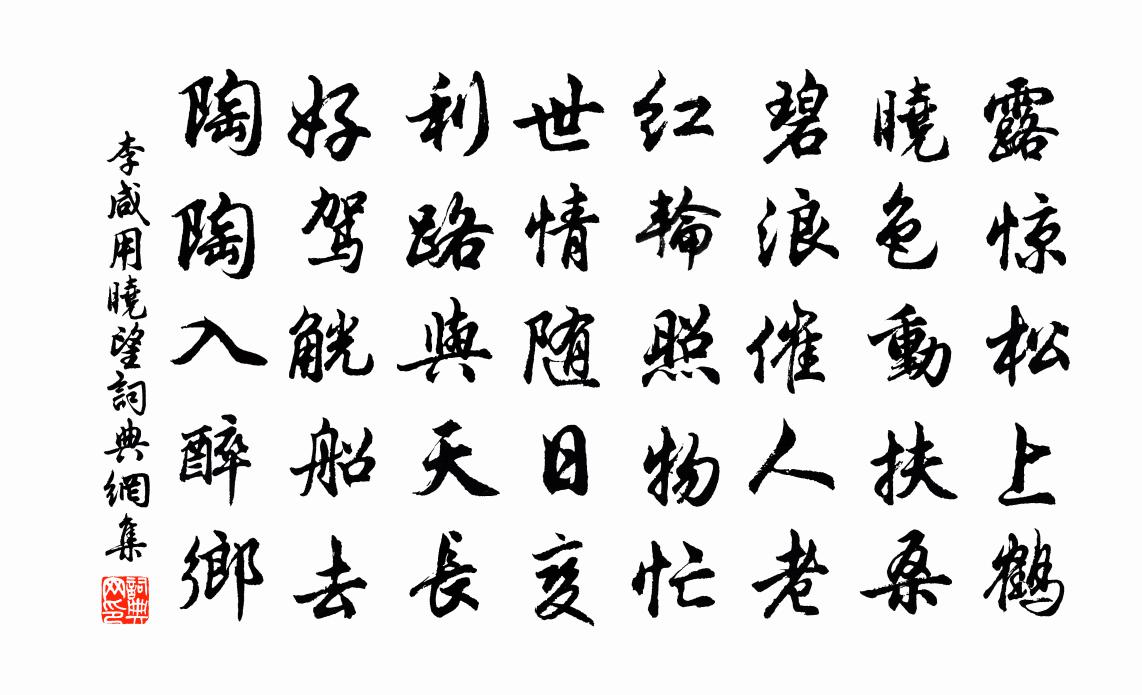 露惊松上鹤
曉色動扶桑
碧浪催人老
红輪照物忙
世情随日变
利路與天長
好駕觥船去
陶陶入醉鄉
李咸用曉望詞典網集
詞典
网印